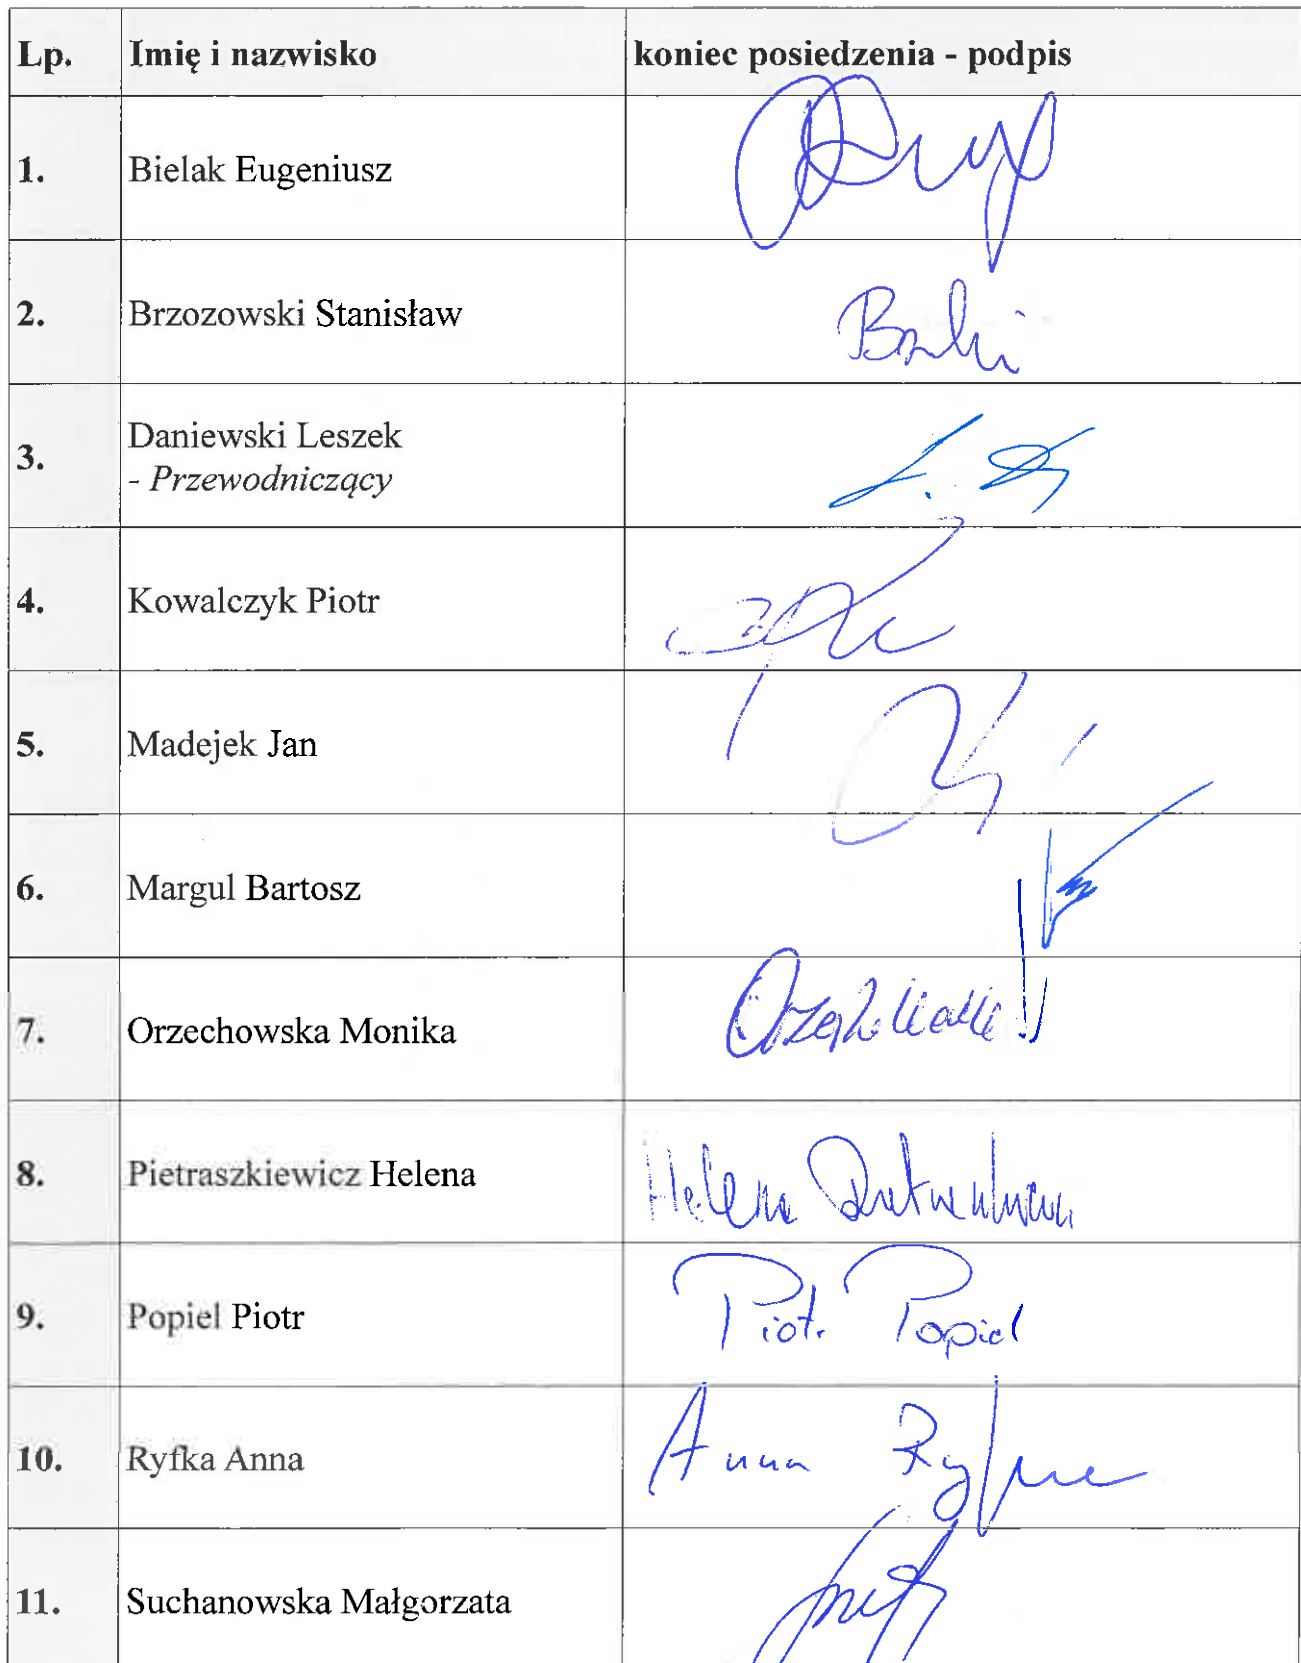 Lp. Imię i nazwisko koniec posiedzenia - podpis
1. Bielak Eugeniusz
2. Brzozowski Stanisław
3. Daniewski Leszek
- Przewodniczący
4. Kowalczyk Piotr
5. Madejek Jan
6. Margul Bartosz
7. Orzechowska Monika
8. Pietraszkiewicz Helena Helena
9. Popiel Piotr Piotr Popiel
10. Ryfka Anna Anna
11. Suchanowska Małgorzata